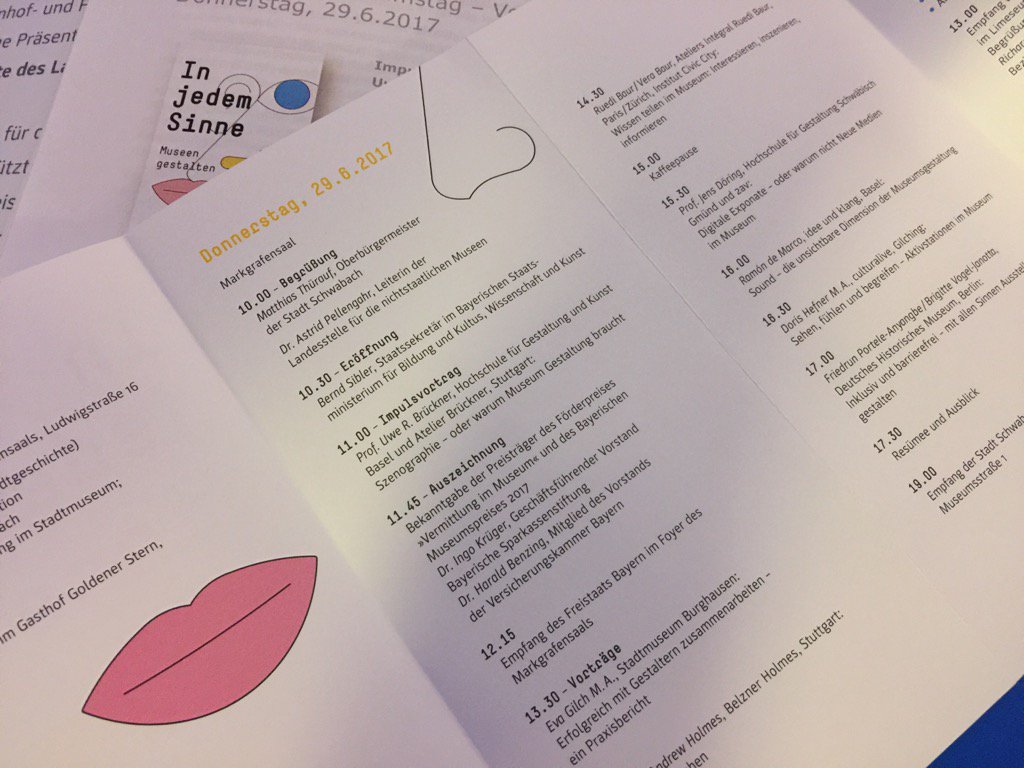 nhof- und
be Präsent
te des La
für d
ützt
eis
Donnerstag, 29.6.2017
In
jedem
Sinne
Museen
gestalten
nsaals, Ludwigstraße 16
dtgeschichte)
tion
ach
ng im Stadtmuseum;
m Gasthof Goldener Stern,
Donnerstag, 29.6.2017
Markgrafensaal
10.00 – Begrüßung
Matthias Thürauf, Oberbürgermeister
der Stadt Schwabach
Dr. Astrid Pellengahr, Leiterin der
Landesstelle für die nichtstaatlichen Museen
10.30 – Eröffnung
Bernd Sibler, Staatssekretär im Bayerischen Staats-
ministerium für Bildung und Kultus, Wissenschaft und Kunst
11.00 – Impulsvortrag
Prof. Uwe R. Brückner, Hochschule für Gestaltung und Kunst
Basel und Atelier Brückner, Stuttgart:
Szenographie – oder warum Museum Gestaltung braucht
11.45 – Auszeichnung
Bekanntgabe der Preisträger des Förderpreises
»Vermittlung im Museum« und des Bayerischen
Museumspreises 2017
Dr. Ingo Krüger, Geschäftsführender Vorstand
Bayerische Sparkassenstiftung
Dr. Harald Benzing, Mitglied des Vorstands
der Versicherungskammer Bayern
12.15
Empfang des Freistaats Bayern im Foyer des
Markgrafensaals
13.30 – Vorträge
Eva Gilch M.A., Stadtmuseum Burghausen:
Erfolgreich mit Gestaltern zusammenarbeiten –
ein Praxisbericht
ndrew Holmes, Belzner Holmes, Stuttgart:
chen
14.30
Ruedi Baur/Vera Baur, Ateliers Intégral Ruedi Baur,
Paris/Zürich, Institut Civic City:
Wissen teilen im Museum: interessieren, inszenieren,
informieren
15.00
Kaffeepause
15.30
Prof. Jens Döring, Hochschule für Gestaltung Schwäbisch
Gmünd und zav:
Digitale Exponate – oder warum nicht Neue Medien
im Museum
16.00
Ramón de Marco, idee und klang, Basel:
Sound – die unsichtbare Dimension der Museumsgestaltung
16.30
Doris Hefner M.A., culturalive, Gilching:
Sehen, fühlen und begreifen – Aktivstationen im Museum
17.00
Friedrun Portele-Anyangbe/Brigitte Vogel-Janotta,
Deutsches Historisches Museum, Berlin:
Inklusiv und barrierefrei – mit allen Sinnen Ausstell
gestalten
17.30
Resümee und Ausblick
19.00
Empfang der Stadt Schwab
Museumsstraße 1
13.00
Empfang
im Limeseu
Begrüßu
Richar
Bez